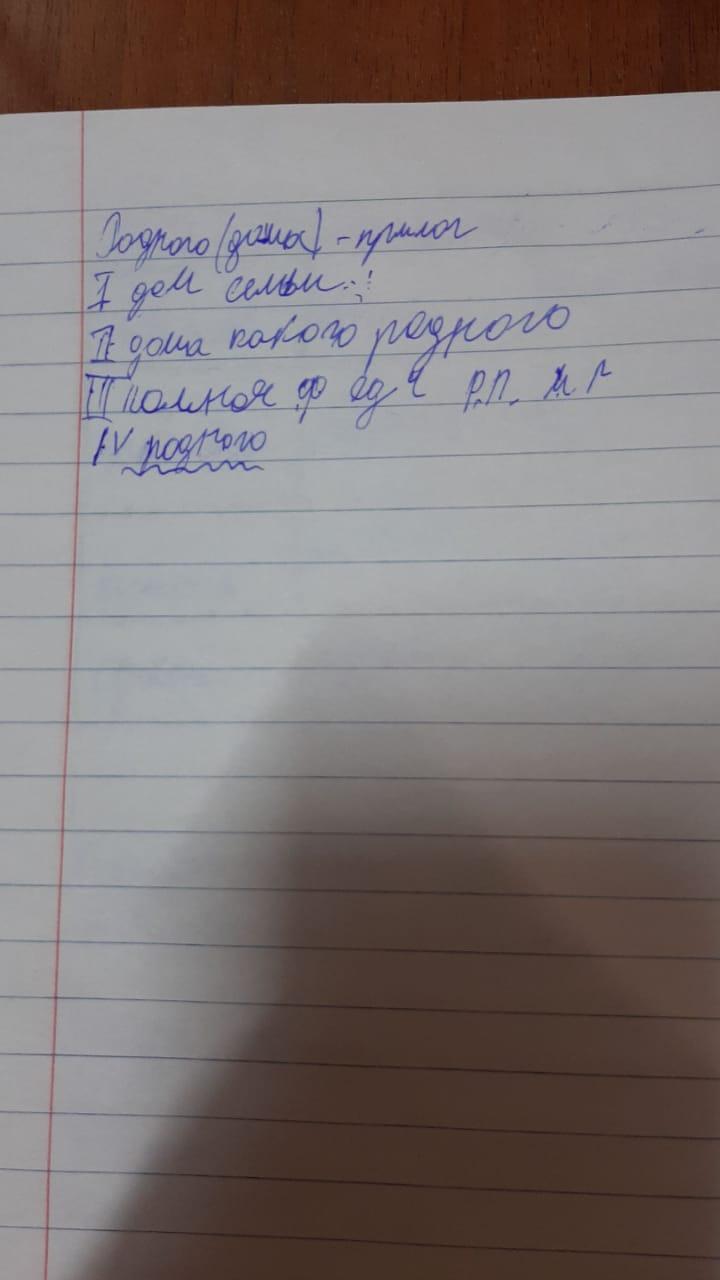 Родного (дома) - прилог
I дом семьи
II дома какого родного
III полная ф ед ч Р.П. м р
IV родного